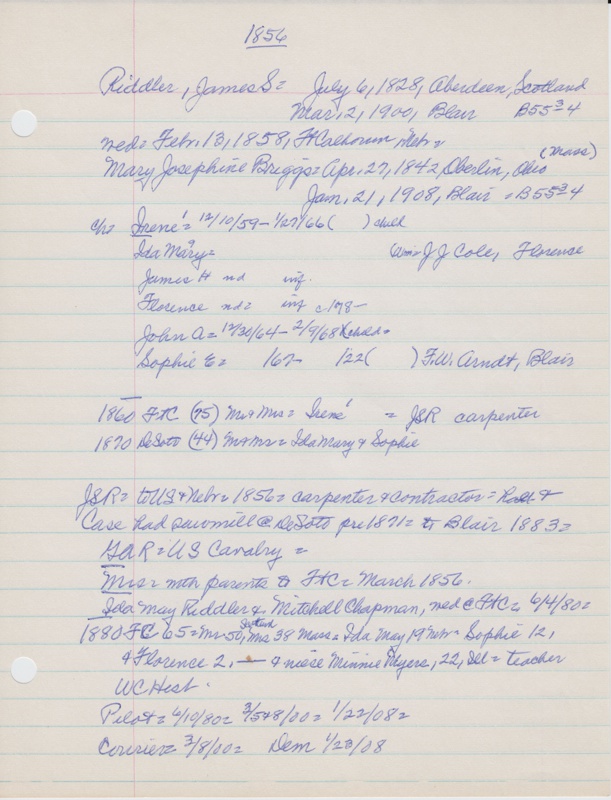 1856
Riddler, James S = July 6, 1828, Aberdeen, Scotland
Mar, 2, 1900, Blair B55-3-4
wed = Feb. 13, 1858, Ft Calhoun, Nebr =
(Mass)
Mary Josephine Briggs = Apr. 27, 1842, Oberlin, Ohio
Jan, 21, 1908, Blair = B55-3-4
ch = Irene = 12/10/59 - 1/27/66 ( ) child
Ida Mary = J J Cole, Florence
James H nd inf.
Florence nd = inf c1878 -
John A = 12/30/64 - 2/9/68 child =
Sophie E = 167- 122( ) F.W. Arndt, Blair
1860 FtC (75) Mr & Mrs = Irene = JSR carpenter
1870 DeSoto (44) Mr & Mrs = Ida Mary & Sophie
JSR = to US & Nebr = 1856 = carpenter & contractor = &
Case had sawmill @ DeSoto pre 1871 = to Blair 1883 =
GAR = US Cavalry =
Mrs = with parents to FtC = March 1856.
Ida May Riddler & Mitchell Chapman, wed @ FtC = 6/4/80 =
1880 FC 65 = Mr 50, Scotland, Mrs 38 Mass = Ida May 19 Nebr = Sophie 12,
& Florence 2, — & niese Minnie Myers, 22, Ill = teacher
WC Hist.
Pilot = 6/10/80 = 3/5&8/00 = 1/22/08 =
Courier = 3/8/00 = Dem 1/23/08